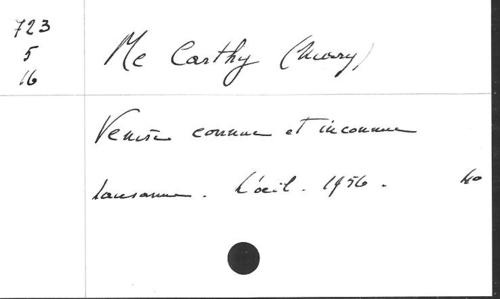 723
5
16
Mc Carthy (Mary)
Venise connue et inconnue
Lausanne. L'oeil. 1956. 4°